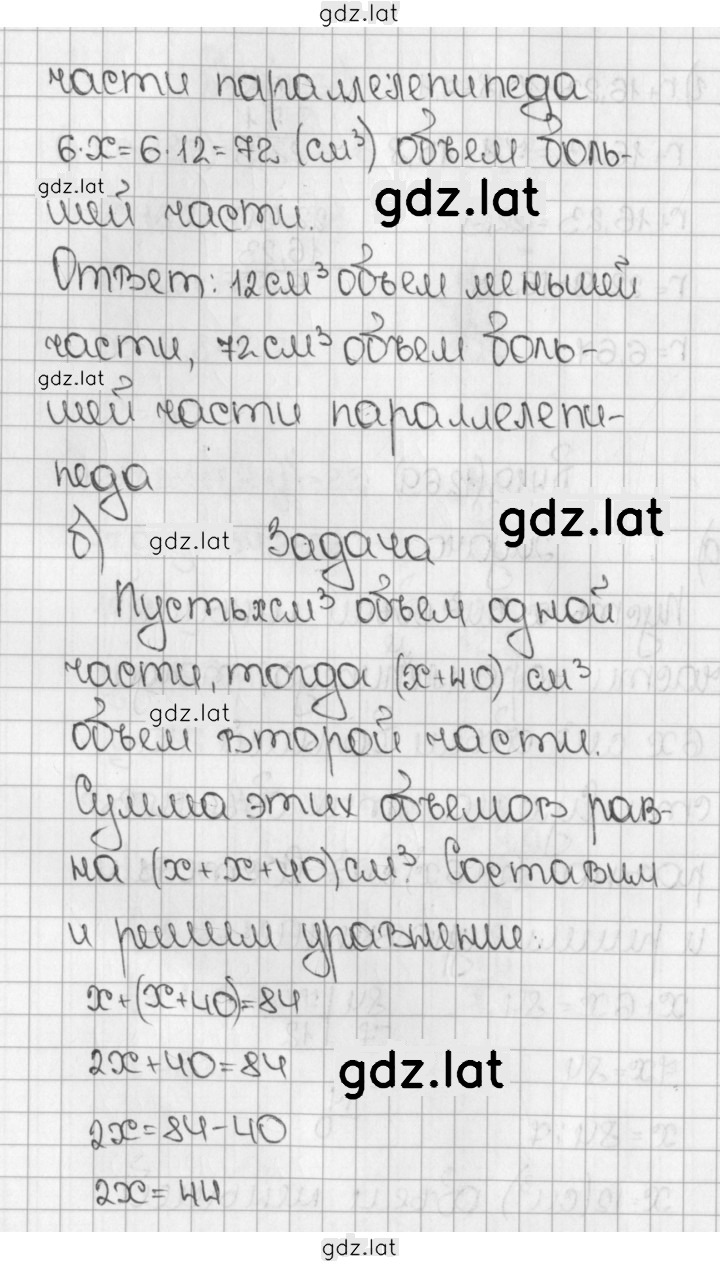 gdz.lat
части параллелепипеда
6·x=6·12=72 (см³) объем боль-
gdz.lat
gdz.lat
шей части.
Ответ: 12см³ объем меньшей
части, 72см³ объем боль-
gdz.lat
шей части параллелепи-
педа
gdz.lat
б) gdz.lat Задача
Пусть x см³ объем одной
части, тогда (x+40) см³
gdz.lat
объем второй части.
Сумма этих объемов рав-
на (x+x+40)см³. Составим
и решим уравнение:
x+(x+40)=84
2x+40=84
gdz.lat
2x=84-40
2x=44
gdz.lat